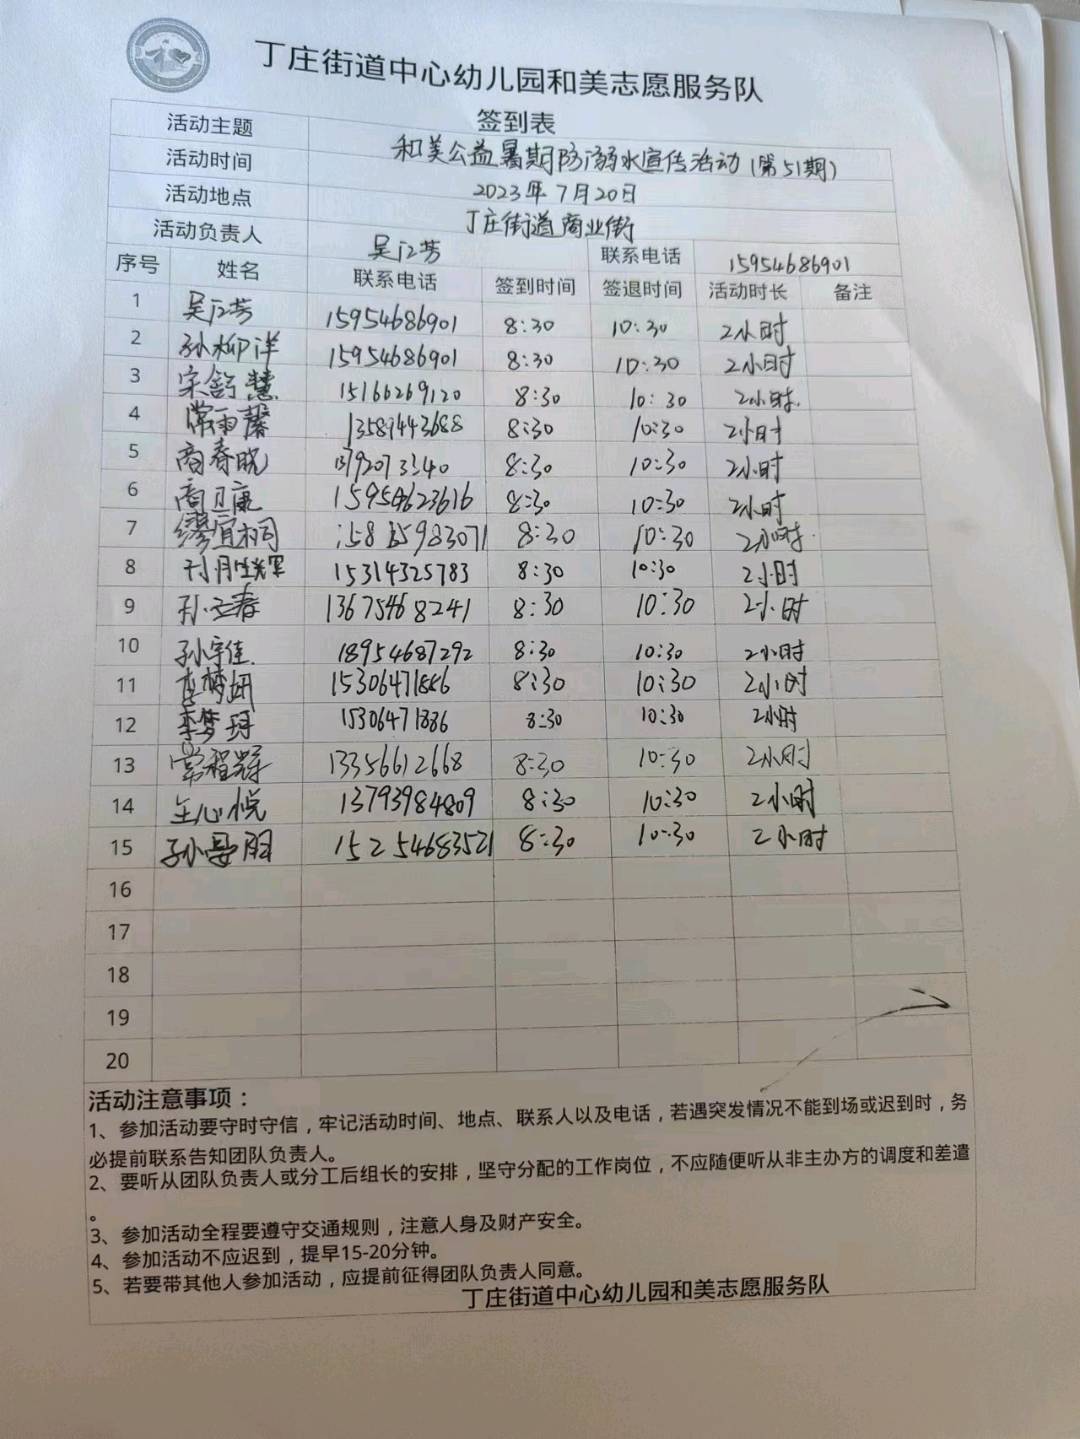 丁庄街道中心幼儿园和美志愿服务队
签到表
活动主题 和美公益暑期防溺水宣传活动(第51期)
活动时间 2023年7月20日
活动地点 丁庄街道商业街
活动负责人 吴江芳 联系电话 15954686901
序号 姓名 联系电话 签到时间 签退时间 活动时长 备注
1 吴江芳 15954686901 8:30 10:30 2小时
2 孙柳洋 15954686901 8:30 10:30 2小时
3 宋舒慧 15166269120 8:30 10:30 2小时.
4 常雨馨 13589443688 8:30 10:30 2小时
5 商春晓 8:30 10:30 2小时
6 商卫康 15954623616 8:30 10:30 2小时
7 缪宜桐 8:30 10:30 2小时.
8 15314325783 8:30 10:30 2小时
9 孙立春 13675468241 8:30 10:30 2小时
10 孙宇佳. 18954687292 8:30 10:30 2小时
11 李梦妍 8:30 10:30 2小时
12 李梦珂 15306471886 8:30 10:30 2小时
13 常程辉 13356612668 8:30 10:30 2小时
14 王心悦 13793984809 8:30 10:30 2小时
15 15254683521 8:30 10:30 2小时
16
17
18
19
20
活动注意事项：
1、参加活动要守时守信，牢记活动时间、地点、联系人以及电话，若遇突发情况不能到场或迟到时，务
必提前联系告知团队负责人。
2、要听从团队负责人或分工后组长的安排，坚守分配的工作岗位，不应随便听从非主办方的调度和差遣
。
3、参加活动全程要遵守交通规则，注意人身及财产安全。
4、参加活动不应迟到，提早15-20分钟。
5、若要带其他人参加活动，应提前征得团队负责人同意。
丁庄街道中心幼儿园和美志愿服务队